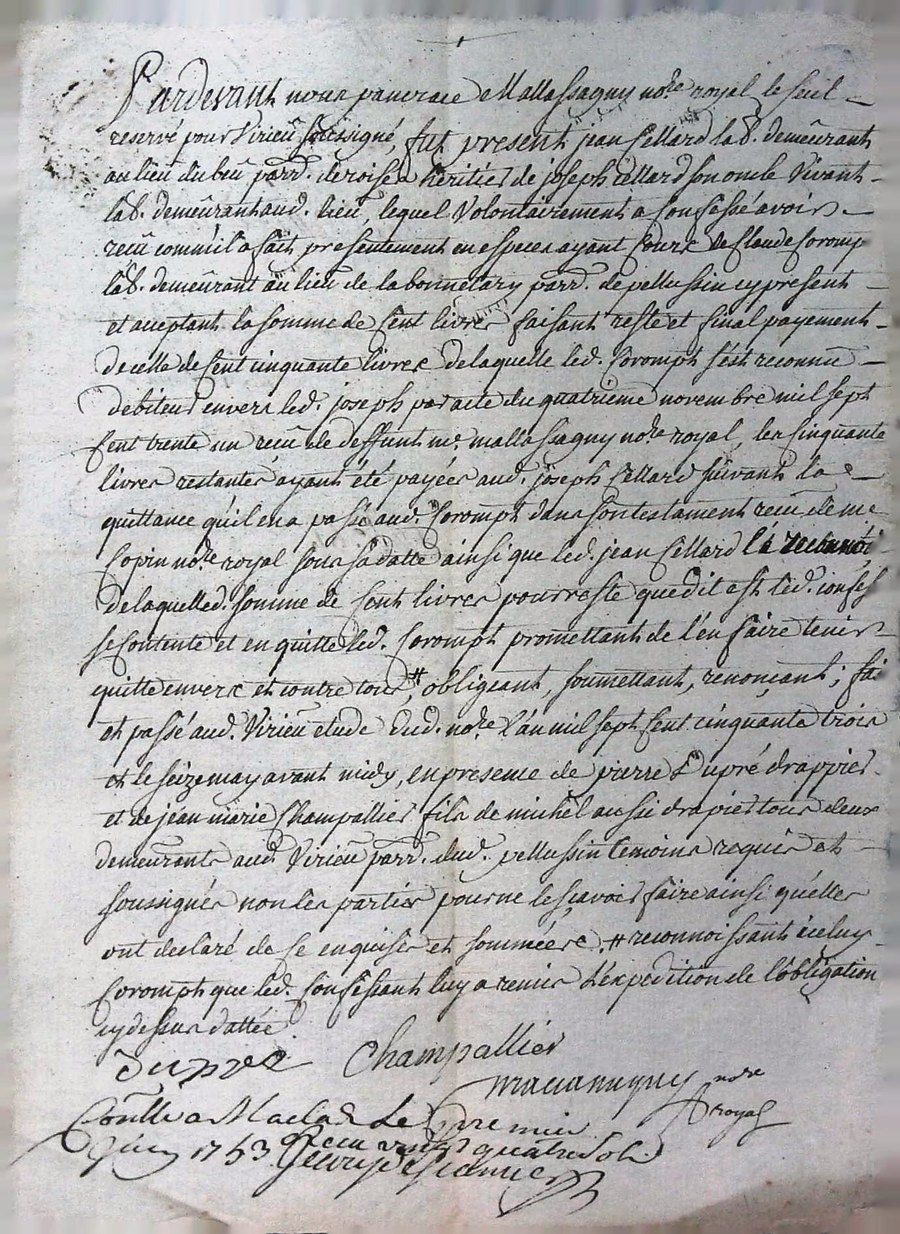 Pardevant nous pancrace Mallassagny no.re royal le seul
reservé pour Virieu soussigné, fut present jean Cellard lab. demeurant
au lieu du beu parr. de roisea heritier de joseph Cellard son oncle Vivant
lab. demeurant aud. lieu, lequel Volontairement a Confessé avoir
recu comm'il a fait presentement en especes ayant Cours de Claude Coromp
lab. demeurant au lieu de la bonnetary parr. de pellussin cy present
et acceptant la somme de Cent livres faisant reste et final payement
de celle de Cent cinquante livres de laquelle led. Corompt s'est reconnu
debiteur envers led. joseph par acte du quatrieme novembre mil sept
Cent trente un reçû de deffunt me. mallassagny no.re royal, les Cinquante
livres restantes ayant été payées aud. joseph Cellard suivant la
quittance qu'il en a passé aud. Corompt dans son testament recu de me
Copin no.re royal sous sa datte ainsi que led. jean Cellard l'a reconnoi
de laquelled. somme de Cent livres pour reste que dit est led. confes
se Contente et en quitte led. Corompt promettant de l'en faire tenir
quitte envers et contre tous # obligeant, soumettant, renonçant; fai
et passé aud. Virieu etude dud. no.re l'an mil sept Cent cinquante trois
et le seize may avant midy, en presence de pierre Dupré drappier
et de jean marie Champallier fils de michel aussi drapier tous deux
demeurants aud. Virieu parr. dud. pellussin temoins requis et
soussignés non les parties pour ne le scavoir faire ainsi qu'elles
ont declaré de ce enquises et sommées # reconnoissant iceluy
Corompt que led. Confessant luy a remis l'expedition de l'obligation
cy dessus dattée
Duprez Champallier
Mallassagny no.re
royal
Conlle a Maclas Le premier
juin 1753 Recu vingt quatre sols